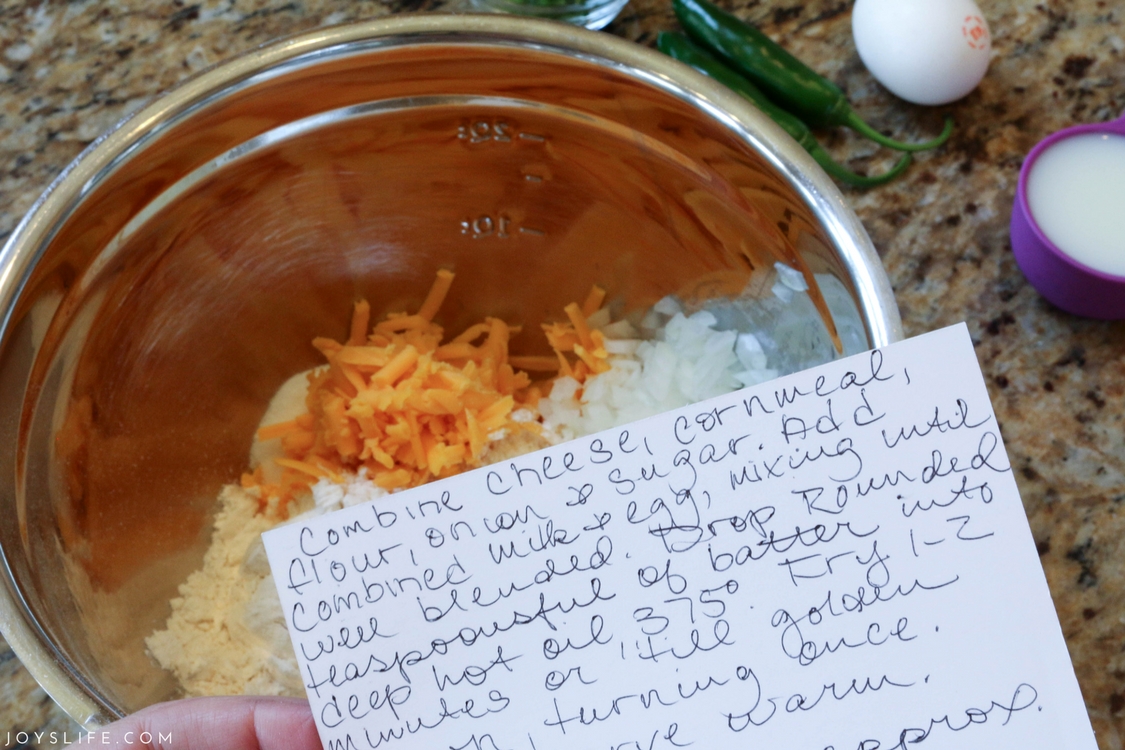 20.
10.
Combine cheese, cornmeal,
flour, onion & sugar. Add
combined milk & egg, mixing until
well blended. Drop Rounded
teaspoonsful of batter into
deep hot oil, 375°. Fry 1-2
minutes or 'till golden
turning once.
warm.
approx.
JOYSLIFE.COM